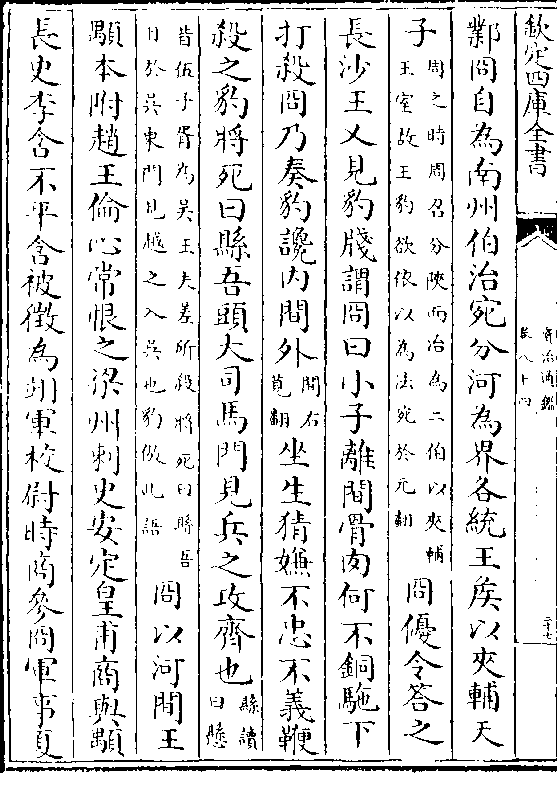 欽定四庫全書
資治通鑑
卷八十四
三十七
鄴冏自為南州伯治宛分河為界各統王矦以夾輔天
子周之時周召分陜而治為二伯以夾輔王室故王豹欲依以為法宛於元翻冏優令答之
長沙王乂見豹牋謂冏曰小子離間骨肉何不銅駞下
打殺冏乃奏豹讒内間外間右莧翻坐生猜嫌不忠不義鞭
殺之豹將死曰縣吾頭大司馬門見兵之攻齊也縣讀曰懸
昔伍子胥為吳王夫差所殺將死曰縣吾目於吳東門見越之入吳也豹倣此語冏以河間王
顒本附趙王倫心常恨之梁州刺史安定皇甫商與顒
長史李含不平含被徵為翊軍校尉時商參冏軍事夏